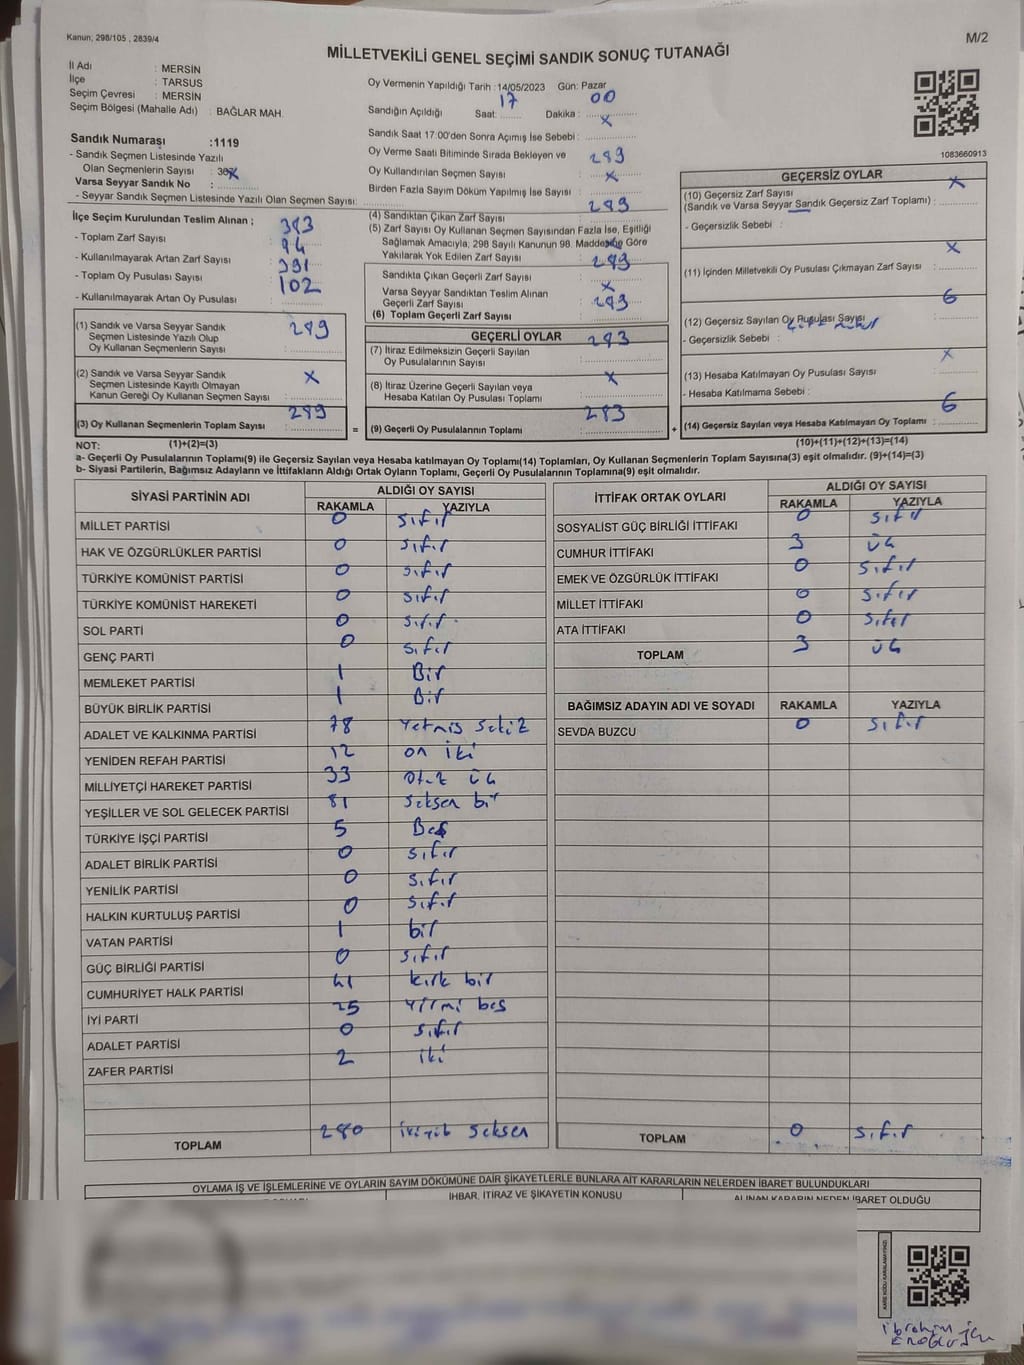 Kanun; 298/105 , 2839/4
M/2
MİLLETVEKİLİ GENEL SEÇİMİ SANDIK SONUÇ TUTANAĞI
İl Adı : MERSİN
İlçe : TARSUS
Seçim Çevresi : MERSİN
Seçim Bölgesi (Mahalle Adı) : BAĞLAR MAH.
Sandık Numarası :1119
- Sandık Seçmen Listesinde Yazılı
Olan Seçmenlerin Sayısı :
Varsa Seyyar Sandık No :
- Seyyar Sandık Seçmen Listesinde Yazılı Olan Seçmen Sayısı:
Oy Vermenin Yapıldığı Tarih :14/05/2023 Gün: Pazar
Sandığın Açıldığı Saat: 17 Dakika : 00
Sandık Saat 17:00'den Sonra Açımış İse Sebebi : x
Oy Verme Saati Bitiminde Sırada Bekleyen ve
Oy Kullandırılan Seçmen Sayısı 289
Birden Fazla Sayım Döküm Yapılmış İse Sayısı x
1083660913
İlçe Seçim Kurulundan Teslim Alınan ;
- Toplam Zarf Sayısı : 383
- Kullanılmayarak Artan Zarf Sayısı : 94
- Toplam Oy Pusulası Sayısı : 391
- Kullanılmayarak Artan Oy Pusulası : 102
(1) Sandık ve Varsa Seyyar Sandık
Seçmen Listesinde Yazılı Olup
Oy Kullanan Seçmenlerin Sayısı : 289
(2) Sandık ve Varsa Seyyar Sandık
Seçmen Listesinde Kayıtlı Olmayan
Kanun Gereği Oy Kullanan Seçmen Sayısı : x
(3) Oy Kullanan Seçmenlerin Toplam Sayısı : 289
(4) Sandıktan Çıkan Zarf Sayısı : 289
(5) Zarf Sayısı Oy Kullanan Seçmen Sayısından Fazla İse, Eşitliği
Sağlamak Amacıyla; 298 Sayılı Kanunun 98. Maddesine Göre
Yakılarak Yok Edilen Zarf Sayısı : x
Sandıkta Çıkan Geçerli Zarf Sayısı : 289
Varsa Seyyar Sandıktan Teslim Alınan
Geçerli Zarf Sayısı : x
(6) Toplam Geçerli Zarf Sayısı : 289
GEÇERLİ OYLAR
(7) İtiraz Edilmeksizin Geçerli Sayılan
Oy Pusulalarının Sayısı : 283
(8) İtiraz Üzerine Geçerli Sayılan veya
Hesaba Katılan Oy Pusulası Toplamı : x
= (9) Geçerli Oy Pusulalarının Toplamı : 283
GEÇERSİZ OYLAR
(10) Geçersiz Zarf Sayısı
(Sandık ve Varsa Seyyar Sandık Geçersiz Zarf Toplamı) : x
- Geçersizlik Sebebi :
(11) İçinden Milletvekili Oy Pusulası Çıkmayan Zarf Sayısı : x
(12) Geçersiz Sayılan Oy Pusulası Sayısı : 6
- Geçersizlik Sebebi :
(13) Hesaba Katılmayan Oy Pusulası Sayısı : x
- Hesaba Katılmama Sebebi :
+ (14) Geçersiz Sayılan veya Hesaba Katılmayan Oy Toplamı : 6
NOT: (1)+(2)=(3)
(10)+(11)+(12)+(13)=(14)
a- Geçerli Oy Pusulalarının Toplamı(9) ile Geçersiz Sayılan veya Hesaba katılmayan Oy Toplamı(14) Toplamları, Oy Kullanan Seçmenlerin Toplam Sayısına(3) eşit olmalıdır. (9)+(14)=(3)
b- Siyasi Partilerin, Bağımsız Adayların ve İttifakların Aldığı Ortak Oyların Toplamı, Geçerli Oy Pusulalarının Toplamına(9) eşit olmalıdır.
SİYASİ PARTİNİN ADI ALDIĞI OY SAYISI
RAKAMLA YAZIYLA
MİLLET PARTİSİ 0 sıfır
HAK VE ÖZGÜRLÜKLER PARTİSİ 0 sıfır
TÜRKİYE KOMÜNİST PARTİSİ 0 sıfır
TÜRKİYE KOMÜNİST HAREKETİ 0 sıfır
SOL PARTİ 0 sıfır
GENÇ PARTİ 0 sıfır
MEMLEKET PARTİSİ 1 Bir
BÜYÜK BİRLİK PARTİSİ 1 Bir
ADALET VE KALKINMA PARTİSİ 78 Yetmiş sekiz
YENİDEN REFAH PARTİSİ 12 on iki
MİLLİYETÇİ HAREKET PARTİSİ 33 Otuz üç
YEŞİLLER VE SOL GELECEK PARTİSİ 81 Seksen bir
TÜRKİYE İŞÇİ PARTİSİ 5 Beş
ADALET BİRLİK PARTİSİ 0 sıfır
YENİLİK PARTİSİ 0 sıfır
HALKIN KURTULUŞ PARTİSİ 0 sıfır
VATAN PARTİSİ 1 bir
GÜÇ BİRLİĞİ PARTİSİ 0 sıfır
CUMHURİYET HALK PARTİSİ 41 kırk bir
İYİ PARTİ 25 Yirmi beş
ADALET PARTİSİ 0 sıfır
ZAFER PARTİSİ 2 iki
TOPLAM 280 ikiyüz seksen
İTTİFAK ORTAK OYLARI ALDIĞI OY SAYISI
RAKAMLA YAZIYLA
SOSYALİST GÜÇ BİRLİĞİ İTTİFAKI 0 sıfır
CUMHUR İTTİFAKI 3 üç
EMEK VE ÖZGÜRLÜK İTTİFAKI 0 sıfır
MİLLET İTTİFAKI 0 sıfır
ATA İTTİFAKI 0 sıfır
TOPLAM 3 üç
BAĞIMSIZ ADAYIN ADI VE SOYADI RAKAMLA YAZIYLA
SEVDA BUZCU 0 sıfır
TOPLAM 0 sıfır
OYLAMA İŞ VE İŞLEMLERİNE VE OYLARIN SAYIM DÖKÜMÜNE DAİR ŞİKAYETLERLE BUNLARA AİT KARARLARIN NELERDEN İBARET BULUNDUKLARI
İHBAR, İTİRAZ VE ŞİKAYETİN KONUSU
ALINAN KARARIN NEDEN İBARET OLDUĞU
KARE KODU KARALAMAYINIZ!
İbrahim